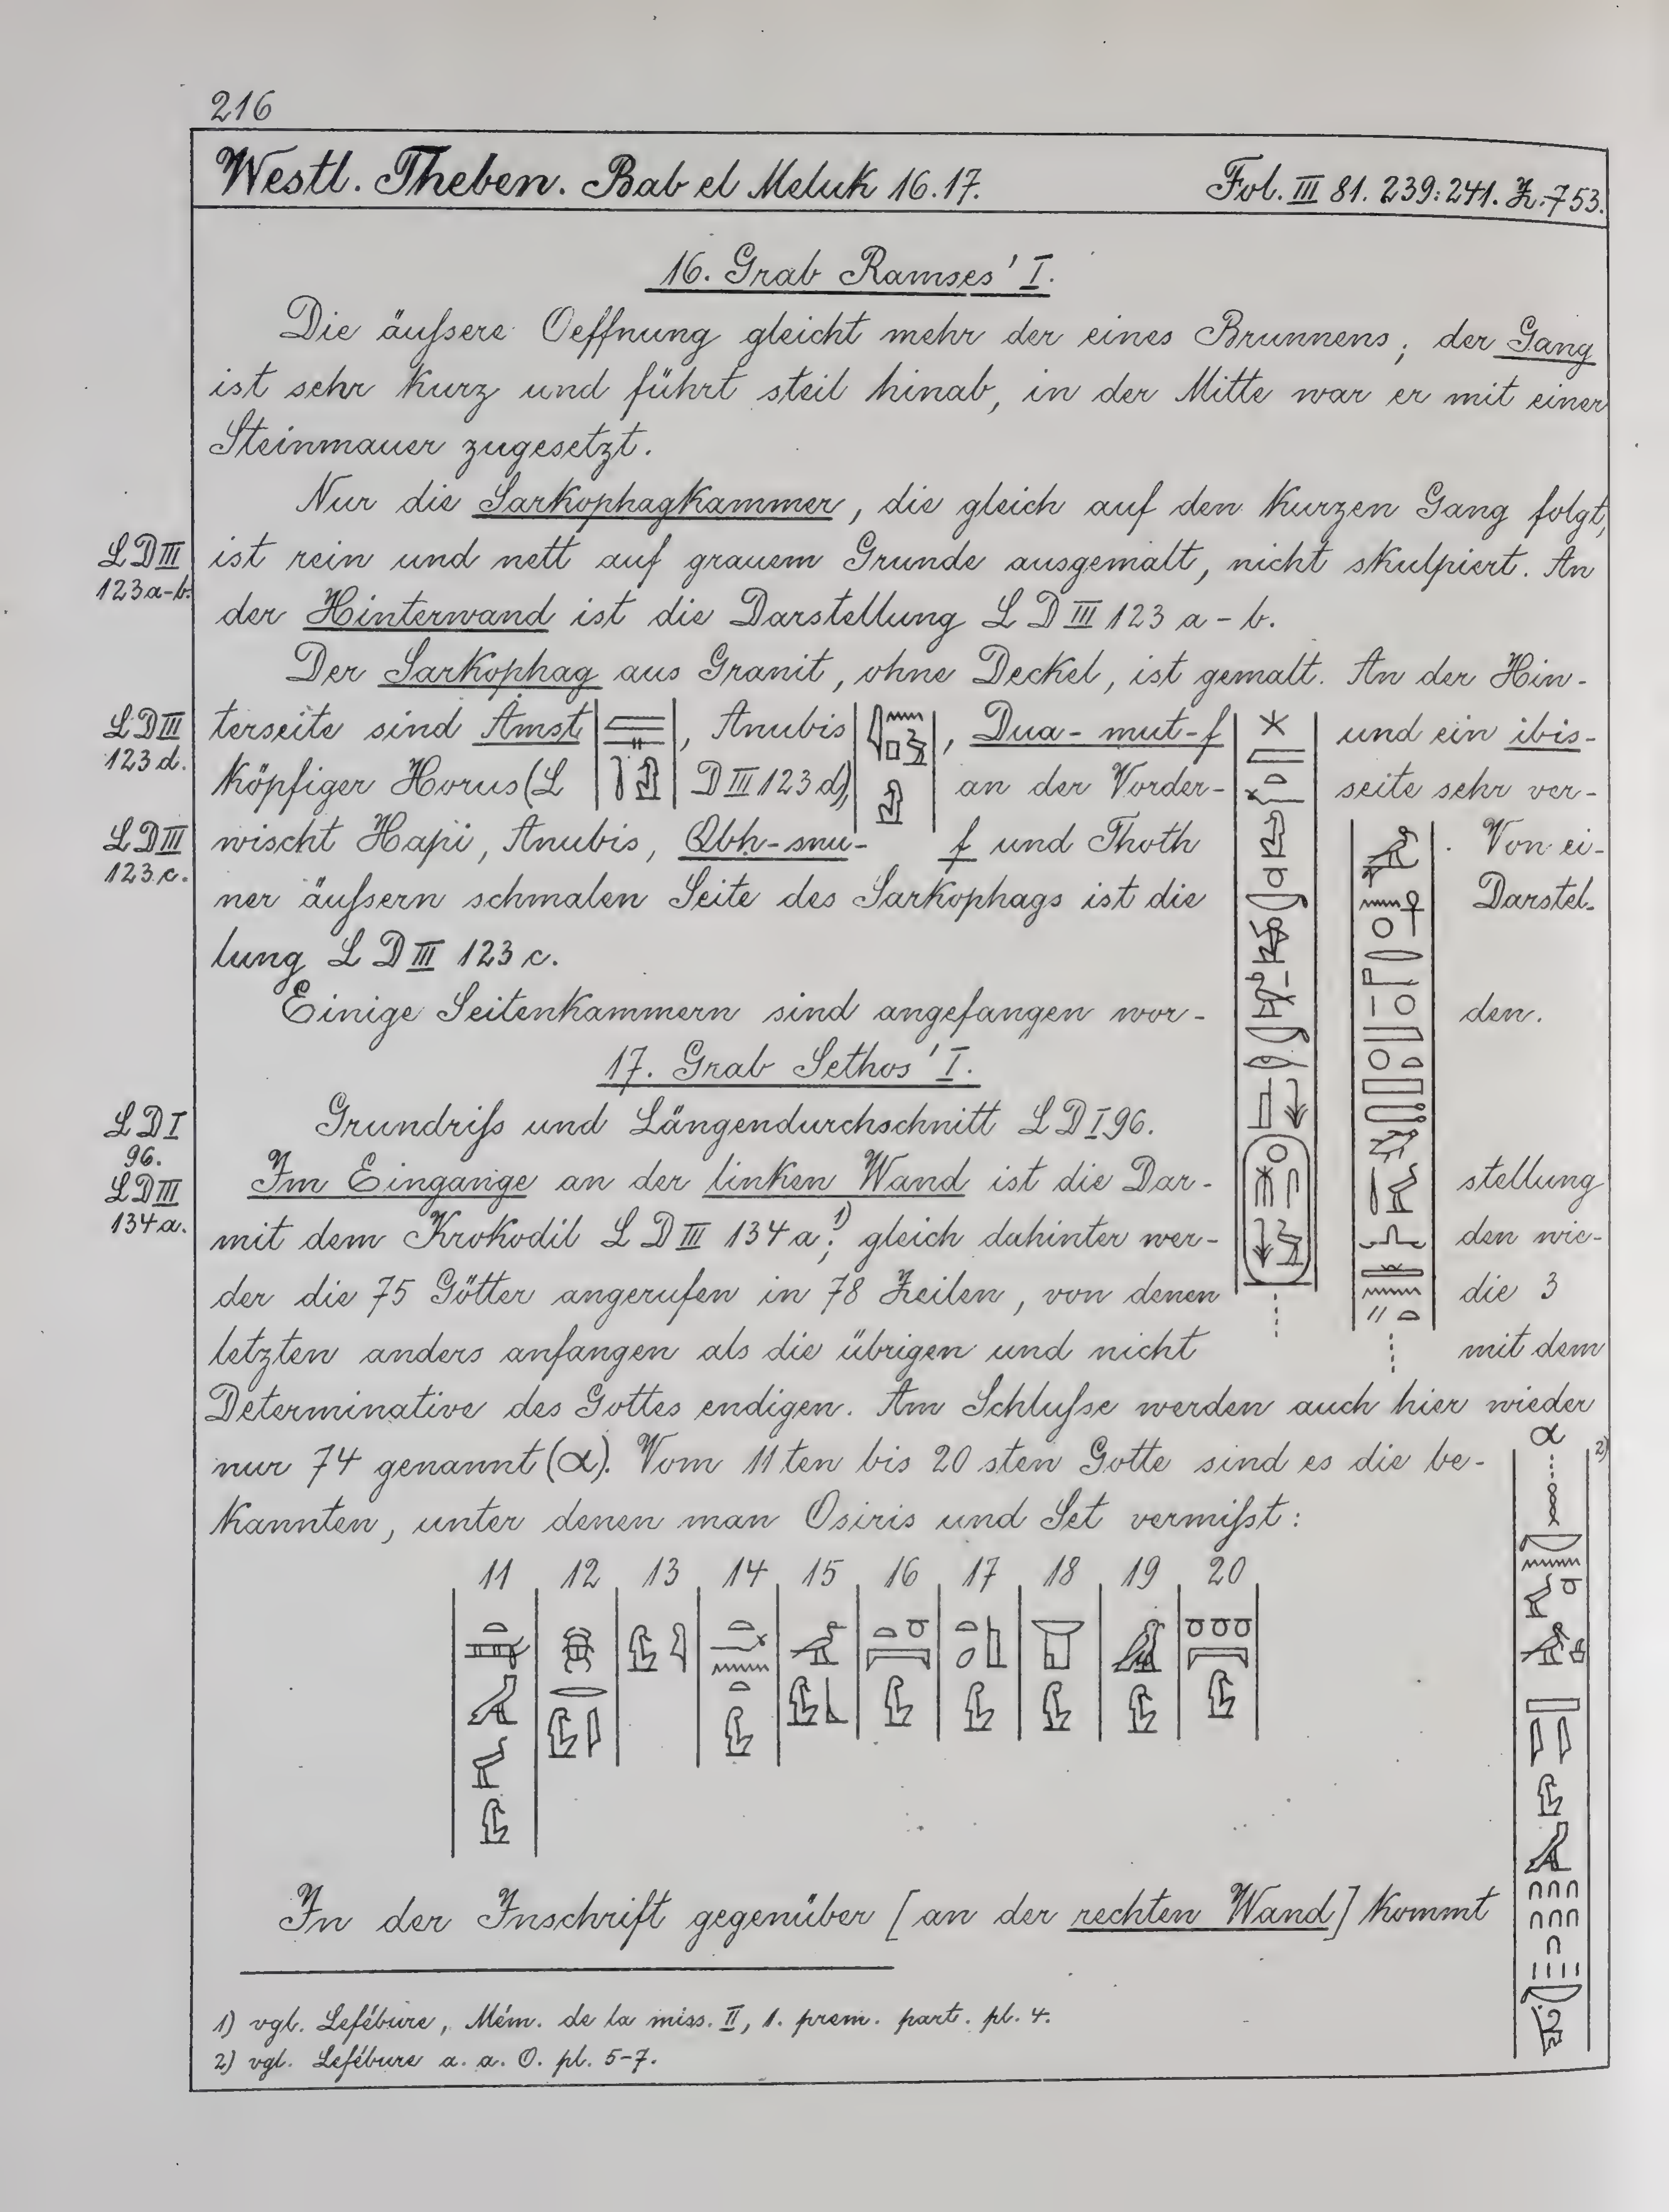 216
Westl. Theben. Bab el Meluk 16.17. Fol. III 81. 239:241. Z.-753.
16. Grab Ramses' I.
Die äußere Oeffnung gleicht mehr der eines Brunnens; der Gang
ist sehr kurz und führt steil hinab, in der Mitte war er mit einer
Steinmauer zugesetzt.
Nur die Sarkophagkammer, die gleich auf den kurzen Gang folgt,
LDIII ist rein und nett auf grauem Grunde ausgemalt, nicht skulpiert. An
123a-b. der Hinterwand ist die Darstellung LDIII 123 a-b.
Der Sarkophag aus Granit, ohne Deckel, ist gemalt. An der Hin-
LDIII terseite sind Amst, Anubis, Dua-mut-f und ein ibis-
123d. köpfiger Horus (LDIII 123d), an der Vorder- seite sehr ver-
LDIII wischt Hapi, Anubis, Qbh-snu-f und Thoth. Von ei-
123.c. ner äußern schmalen Seite des Sarkophags ist die Darstel-
lung LDIII 123 c.
Einige Seitenkammern sind angefangen wor- den.
17. Grab Sethos' I.
LDI Grundriß und Längendurchschnitt LDI 96.
96.
LDIII Im Eingange an der linken Wand ist die Dar- stellung
134a. mit dem Krokodil LDIII 134a¹⁾; gleich dahinter wer- den wie-
der die 75 Götter angerufen in 78 Zeilen, von denen die 3
letzten anders anfangen als die übrigen und nicht mit dem
Determinative des Gottes endigen. Am Schluße werden auch hier wieder
nur 74 genannt (α). Vom 11ten bis 20sten Gotte sind es die be- α 2)
kannten, unter denen man Osiris und Set vermißt:
11 12 13 14 15 16 17 18 19 20
In der Inschrift gegenüber [an der rechten Wand] kommt
1) vgl. Lefébure, Mém. de la miss. II, 1. prem. part. pl. 4.
2) vgl. Lefébure a. a. O. pl. 5-7.